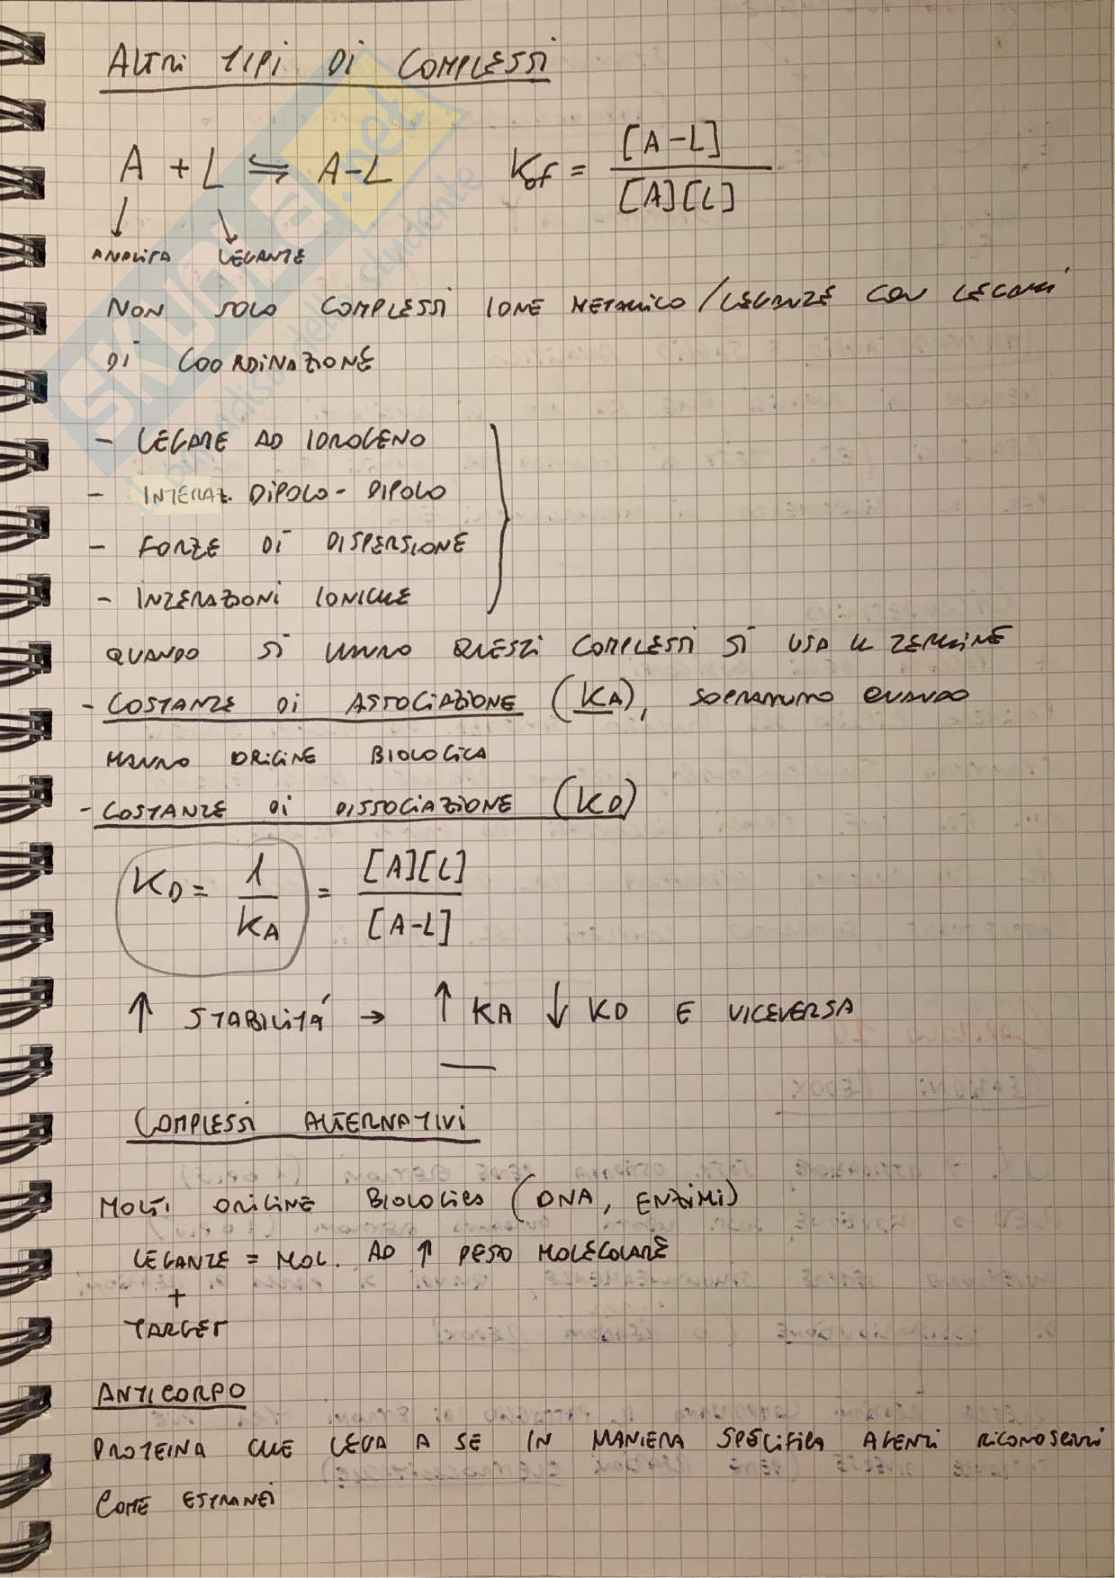 ALTRI TIPI DI COMPLESSI
A + L ⇌ A-L    Kof = [A-L] / [A][L]
ANALITA    LEGANTE
NON SOLO COMPLESSI IONE METALLICO/LEGANTE CON LEGAMI
DI COORDINAZIONE
- LEGAME AD IDROGENO
- INTERAZ. DIPOLO-DIPOLO
- FORZE DI DISPERSIONE
- INTERAZIONI IONICHE
QUANDO SI HANNO QUESTI COMPLESSI SI USA IL TERMINE
- COSTANTE DI ASSOCIAZIONE (KA), SOPRATTUTTO QUANDO
HANNO ORIGINE BIOLOGICA
- COSTANTE DI DISSOCIAZIONE (KD)
KD = 1 / KA = [A][L] / [A-L]
↑ STABILITÁ → ↑ KA ↓ KD E VICEVERSA
COMPLESSI ALTERNATIVI
MOLTI ORIGINE BIOLOGICA (DNA, ENZIMI)
LEGANTE = MOL. AD ↑ PESO MOLECOLARE
+
TARGET
ANTICORPO
PROTEINA CHE LEGA A SE IN MANIERA SPECIFICA AGENTI RICONOSCIUTI
COME ESTRANEI
SKUOLA.net